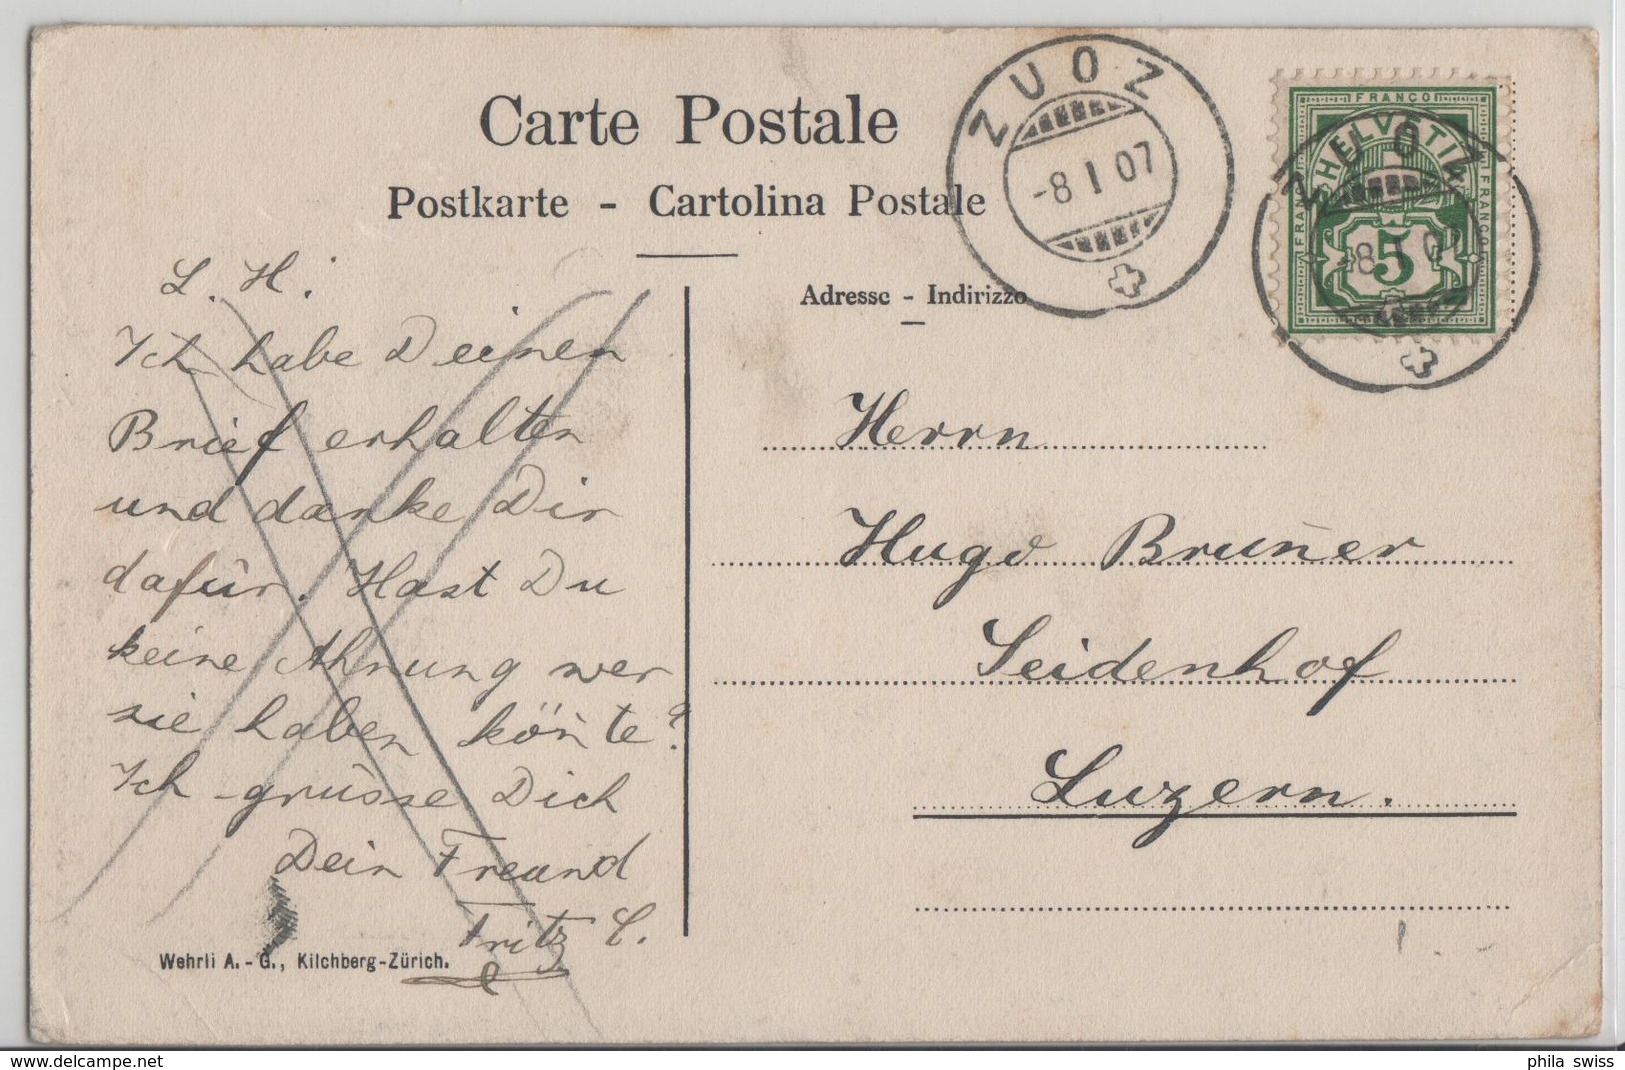 Carte Postale
Postkarte - Cartolina Postale
Adresse - Indirizzo
ZUOZ
-8 I 07
FRANCO
HELVETIA
FRANCO
FRANCO
5
ZUOZ
-8 I 07
L. H.
Ich habe Deinen
Brief erhalten
und danke Dir
dafür. Hast Du
keine Ahnung wer
sie haben kön̄te?
Ich grüsse Dich
Dein Freund
Fritz C.
Herrn
Hugo Brun̄er
Seidenhof
Luzern.
Wehrli A.-G., Kilchberg-Zürich.
phila swiss